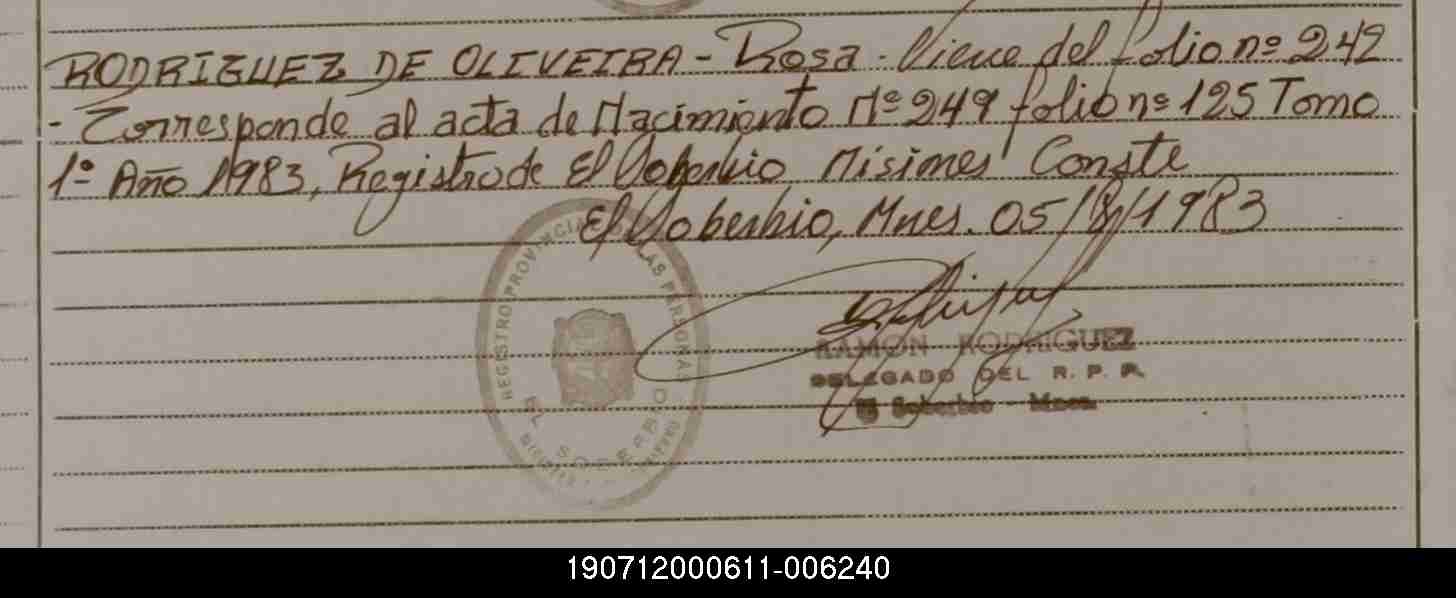 RODRIGUEZ DE OLIVEIRA - Rosa - Viene del folio nº 242
- Corresponde al acta de Nacimiento Nº 249 folio nº 125 Tomo
1º Año 1983, Registro de El Soberbio Misiones Conste
El Soberbio, Mnes. 05/8/1983
REGISTRO PROVINCIAL DE LAS PERSONAS
EL SOBERBIO
RAMON RODRIGUEZ
DELEGADO DEL R. P. P.
El Soberbio - Mnes.
190712000611-006240